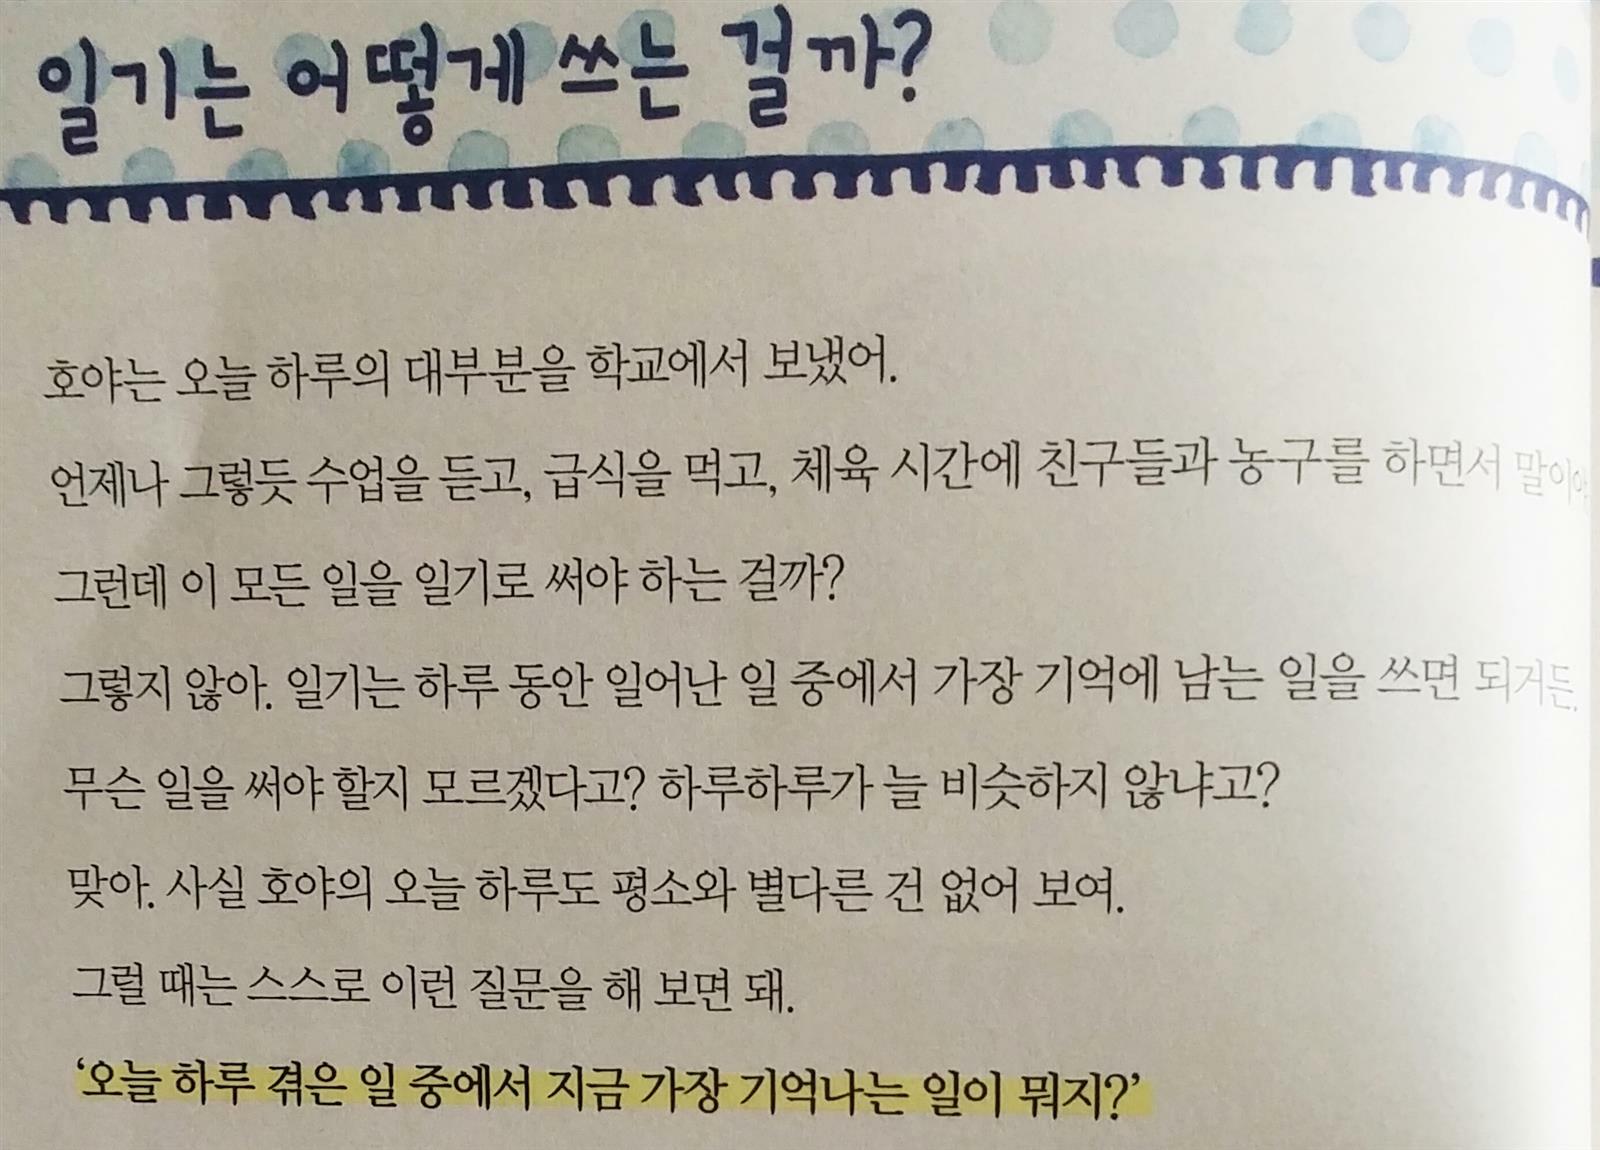 일기는 어떻게 쓰는 걸까?
호야는 오늘 하루의 대부분을 학교에서 보냈어.
언제나 그렇듯 수업을 듣고, 급식을 먹고, 체육 시간에 친구들과 농구를 하면서 말이야
그런데 이 모든 일을 일기로 써야 하는 걸까?
그렇지 않아. 일기는 하루 동안 일어난 일 중에서 가장 기억에 남는 일을 쓰면 되거든.
무슨 일을 써야 할지 모르겠다고? 하루하루가 늘 비슷하지 않냐고?
맞아. 사실 호야의 오늘 하루도 평소와 별다른 건 없어 보여.
그럴 때는 스스로 이런 질문을 해 보면 돼.
‘오늘 하루 겪은 일 중에서 지금 가장 기억나는 일이 뭐지?’